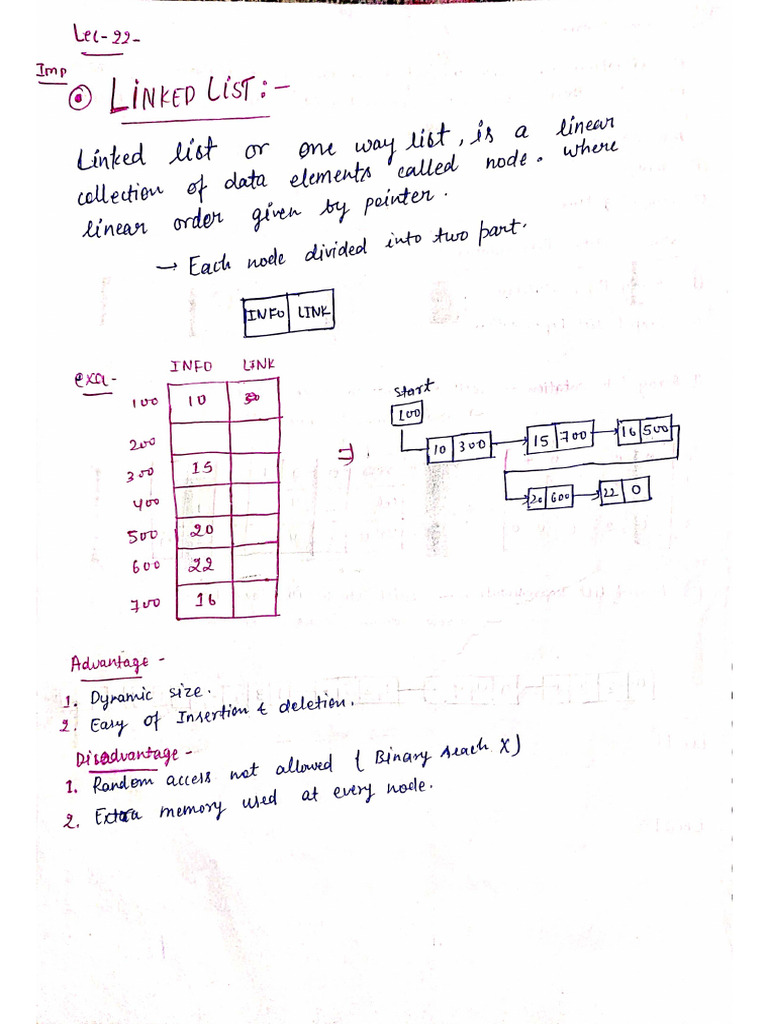 Lec-22-
Imp
LINKED LIST:-
Linked list or one way list, is a linear
collection of data elements called node. where
linear order given by pointer.
→ Each node divided into two part.
INFO LINK
exa-
INFO LINK
100 10
200
300 15
400
500 20
600 22
700 16
⇒
Start
100
10 300 → 15 700 → 16 500
20 600 → 22 0
Advantage -
1. Dynamic size.
2. Easy of Insertion & deletion.
Disadvantage -
1. Random access not allowed ( Binary Seach X)
2. Extra memory used at every node.